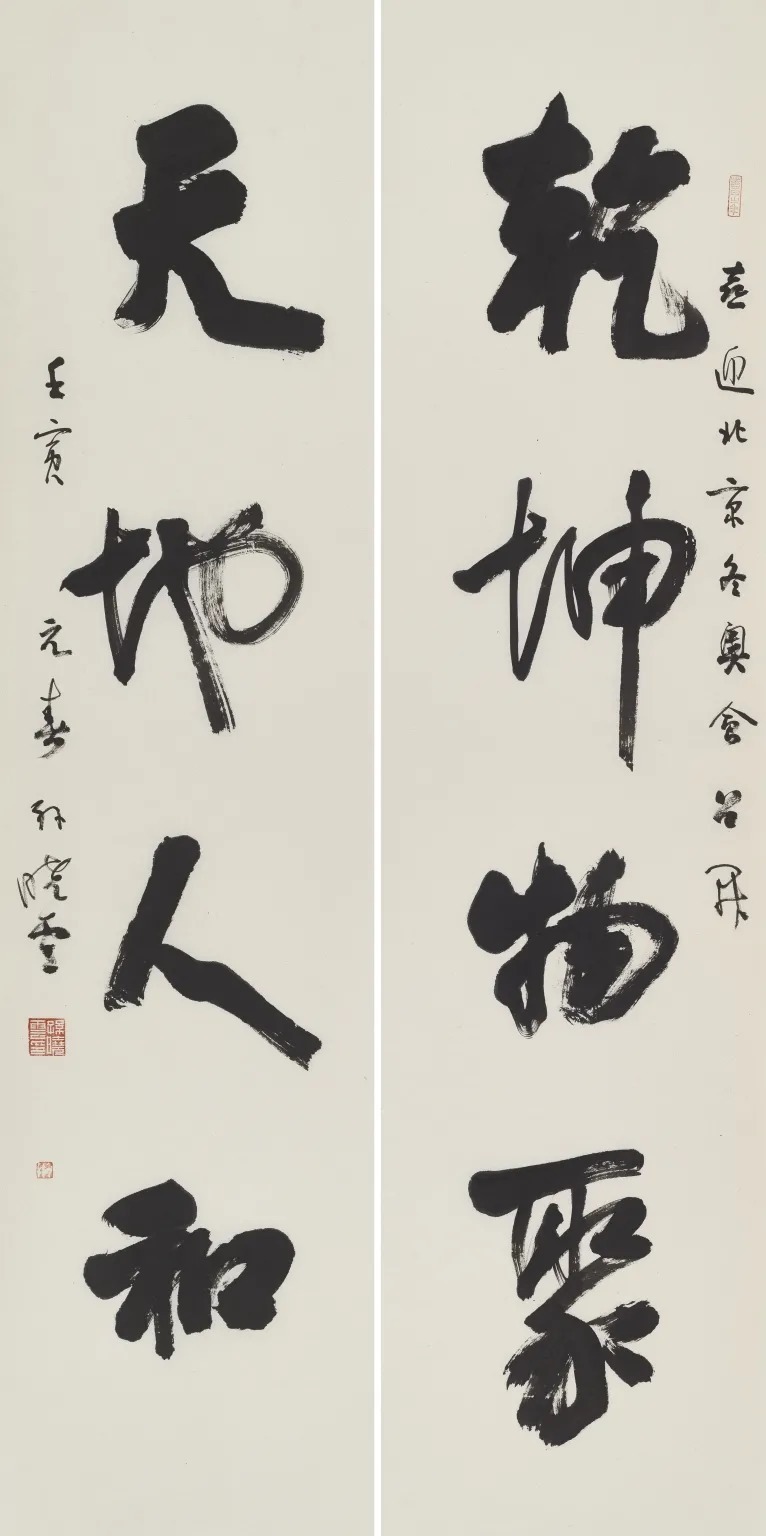 喜迎北京冬奥会召开
乾坤物聚
天地人和
壬寅元春孙晓云